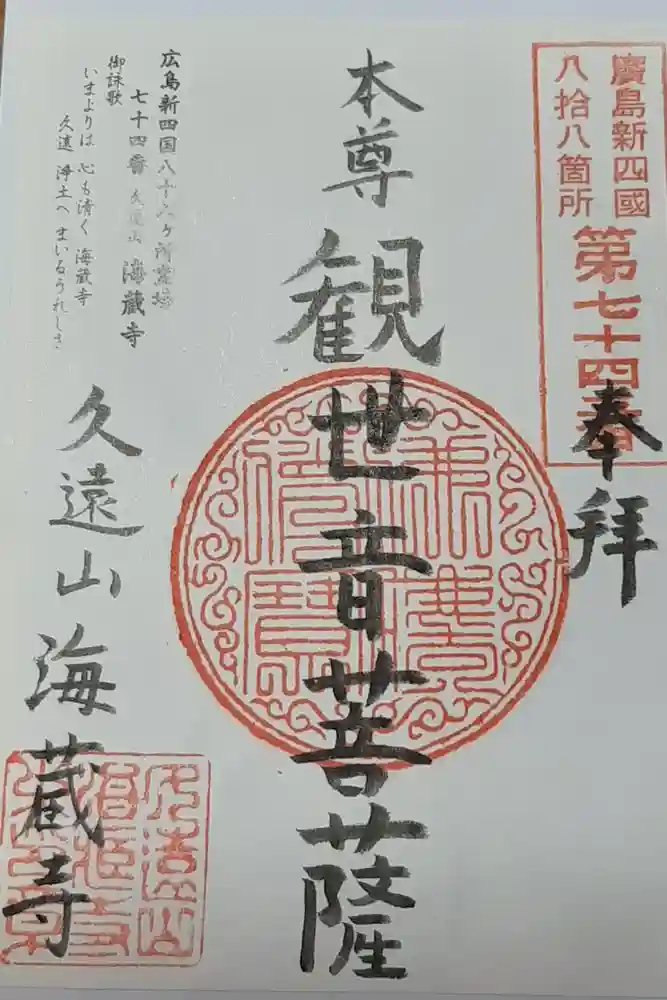 廣島新四國
八拾八箇所
第七十四番
奉拝
本尊
観世音菩薩
広島新四国八十八ヶ所霊場
七十四番 久遠山 海蔵寺
御詠歌
いまよりは 心も清く 海蔵寺
久遠 浄土へ まいるうれしさ
久遠山
海蔵寺
久遠山